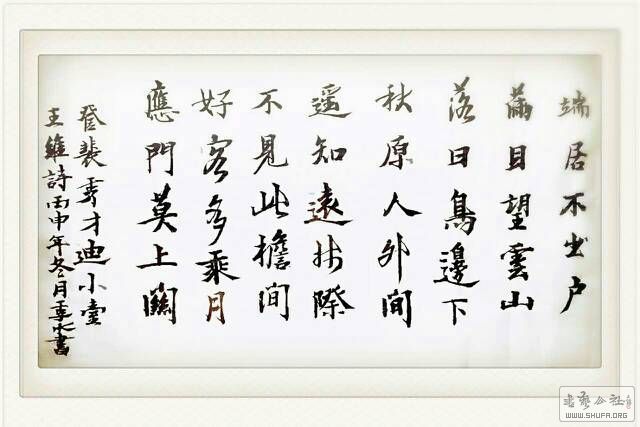 端居不出户
滿目望雲山
落日鳥邊下
秋原人外間
遥知遠林際
不見此檐間
好客多乘月
應門莫上關
登裴秀才迪小臺
王維詩丙申年冬月書
WWW.SHUFA.ORG